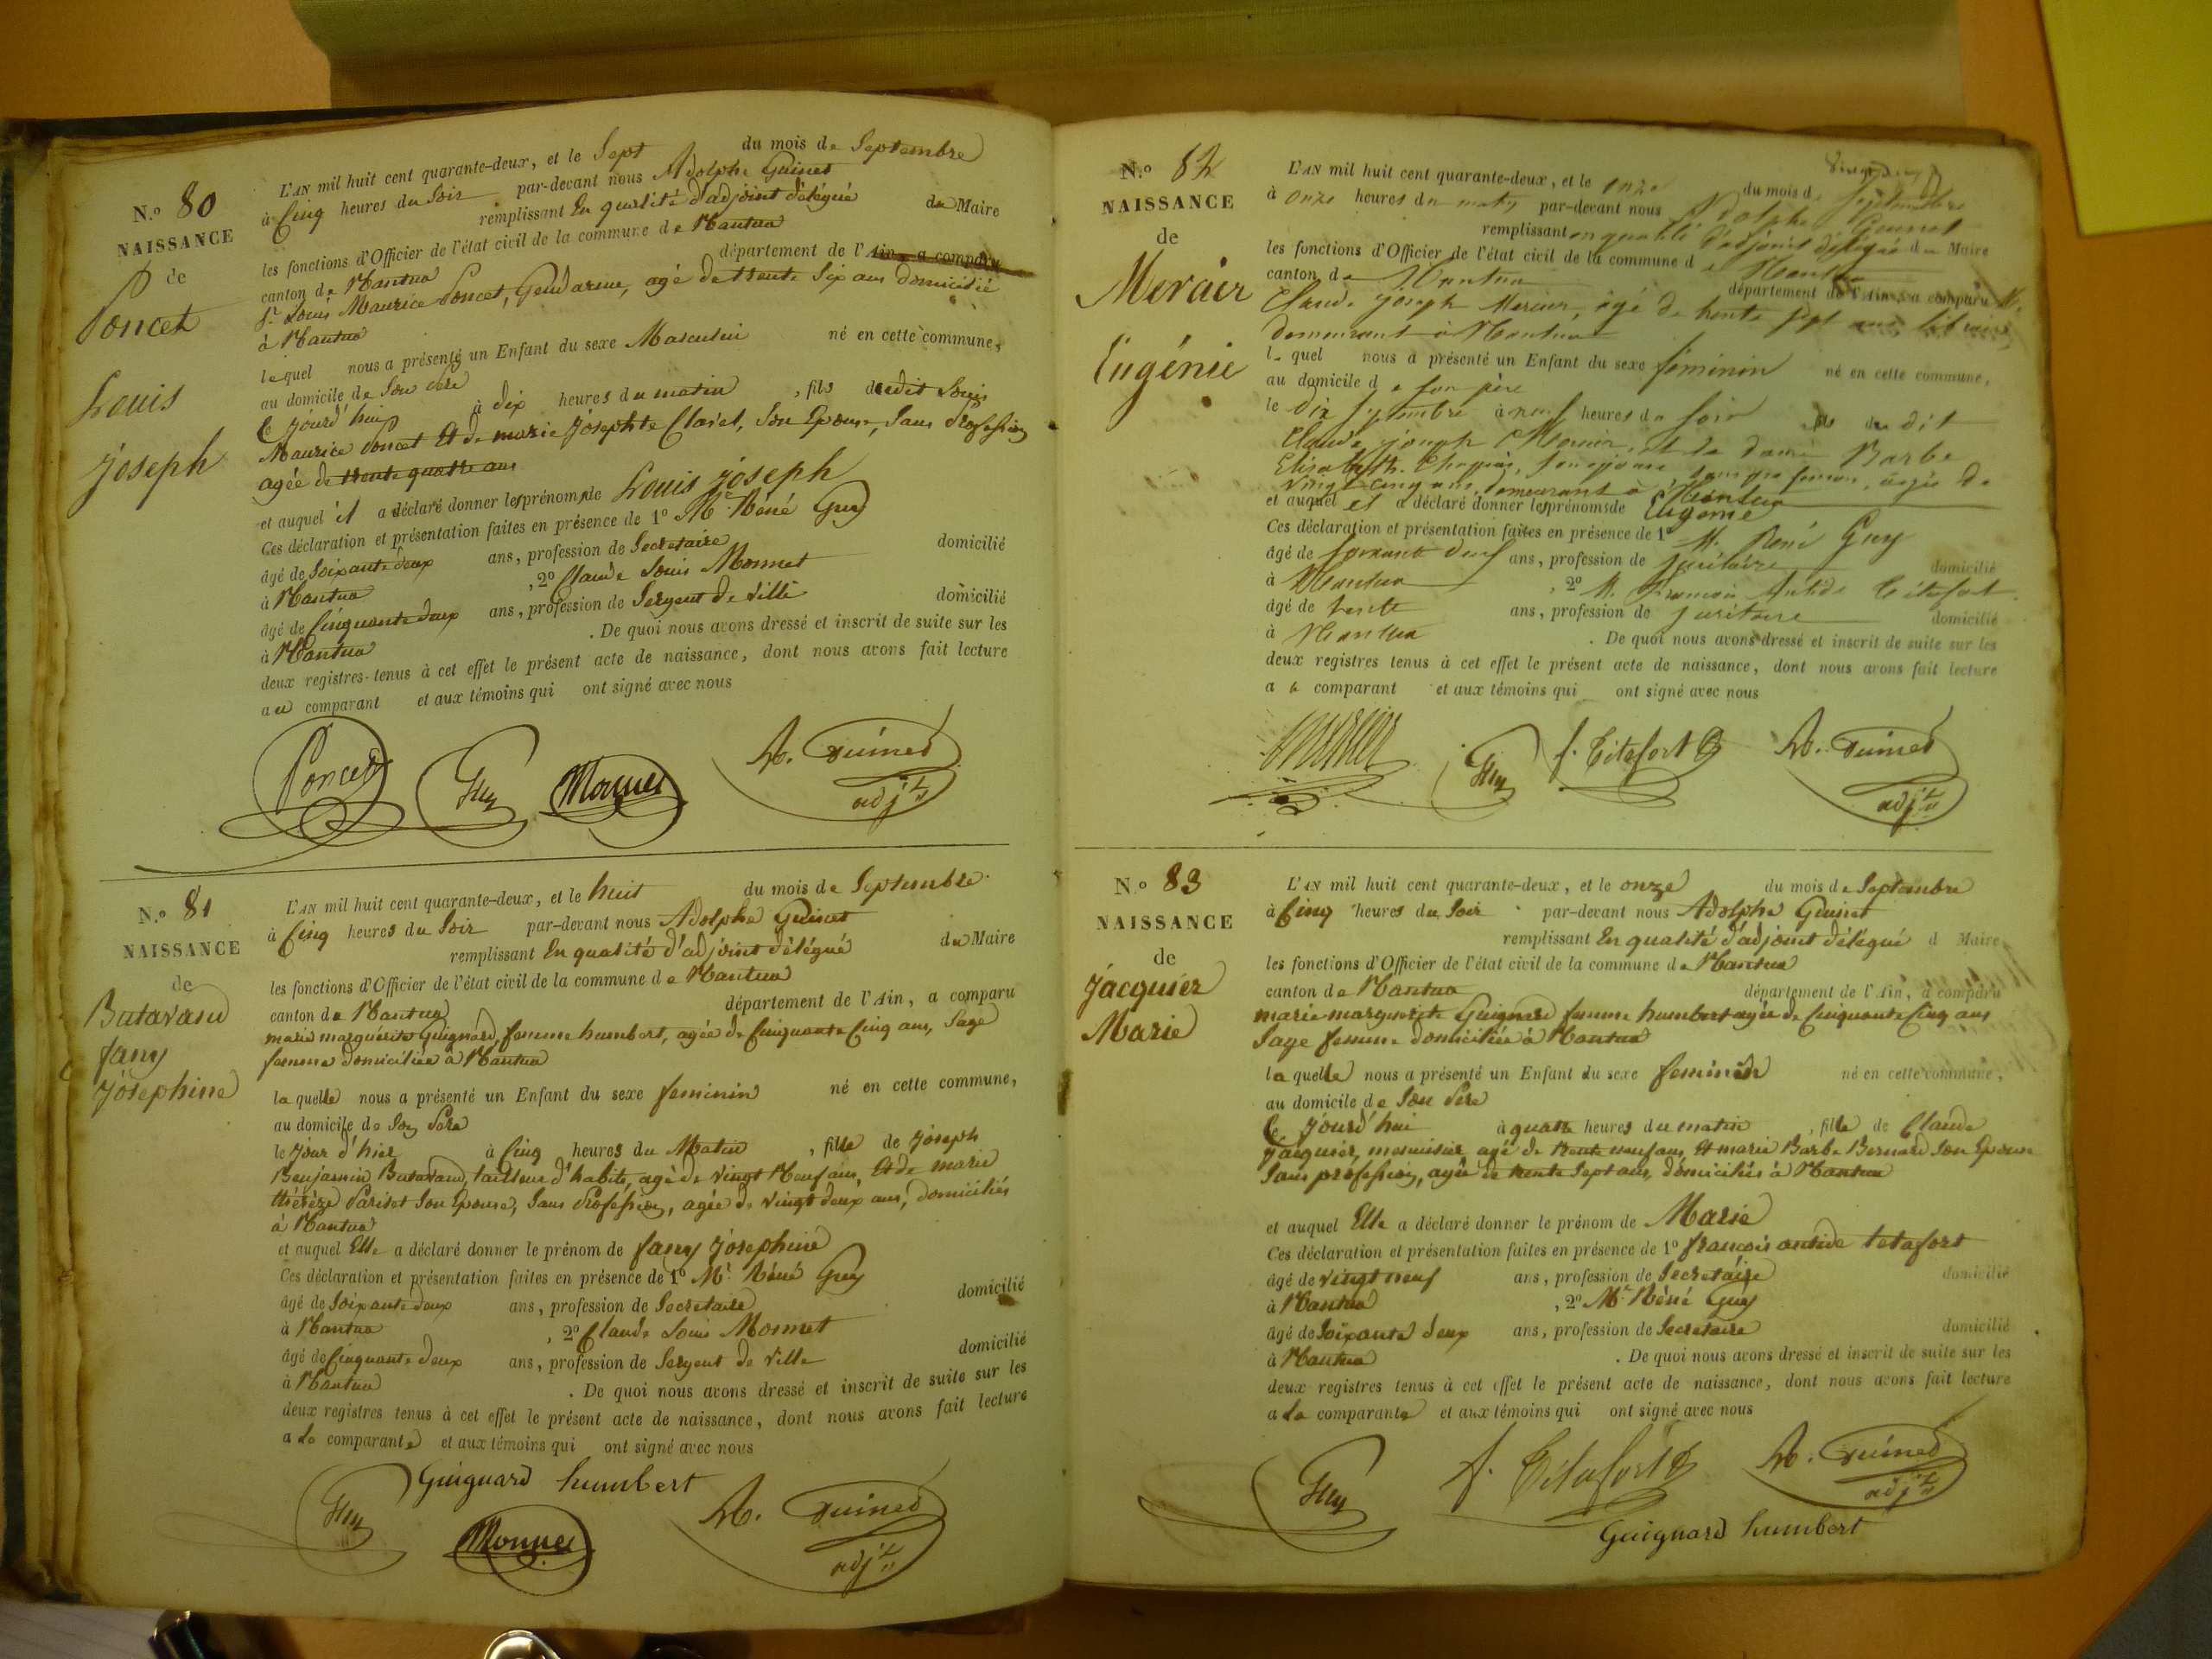 N.º 80
NAISSANCE
de
Poncet
Louis
Joseph
L'AN mil huit cent quarante-deux, et le Sept du mois de Septembre
à Cinq heures du Soir par-devant nous Adolphe Guinet
remplissant En qualité d'adjoint délégué du Maire
les fonctions d'Officier de l'état civil de la commune de Nantua
canton de Nantua département de l'Ain, a comparu
Sr. Louis Maurice Poncet, Gendarme, agé de trente Six ans domicilié
à Nantua
lequel nous a présenté un Enfant du sexe Masculin né en cette commune,
au domicile de Son Père
Ce jourd'hui à dix heures du matin, fils dudit Louis
Maurice Poncet Et de marie Josephte Claret, Son Epouse, Sans Profession
agée de trente quatre ans
et auquel il a déclaré donner les prénoms de Louis Joseph
Ces déclaration et présentation faites en présence de 1º Mr. Réné Guy
âgé de Soixante deux ans, profession de Secretaire domicilié
à Nantua, 2º Claude Louis Monnet
âgé de Cinquante deux ans, profession de Sergent de Ville domicilié
à Nantua. De quoi nous avons dressé et inscrit de suite sur les
deux registres tenus à cet effet le présent acte de naissance, dont nous avons fait lecture
au comparant et aux témoins qui ont signé avec nous
Poncet Guy Monnet A. Guinet
adjt
N.º 81
NAISSANCE
de
Butavand
fany
Josephine
L'AN mil huit cent quarante-deux, et le huit du mois de Septembre
à Cinq heures du Soir par-devant nous Adolphe Guinet
remplissant En qualité d'adjoint délégué du Maire
les fonctions d'Officier de l'état civil de la commune de Nantua
canton de Nantua département de l'Ain, a comparu
marie marguerite Guignard, femme humbert, agée de Cinquante Cinq ans, Sage
femme domiciliée à Nantua
laquelle nous a présenté un Enfant du sexe feminin né en cette commune,
au domicile de Son Père
le Jour d'hier à Cinq heures du Matin, fille de Joseph
Benjamin Butavand, tailleur d'habits, agé de Vingt Neuf ans, Et de marie
thérèze Pariset Son Epouse, Sans Profession, agée de Vingt deux ans, domiciliés
à Nantua
et auquel Elle a déclaré donner le prénom de fany Josephine
Ces déclaration et présentation faites en présence de 1º Mr. Réné Guy
âgé de Soixante deux ans, profession de Secretaire domicilié
à Nantua, 2º Claude Louis Monnet
âgé de Cinquante deux ans, profession de Sergent de Ville domicilié
à Nantua. De quoi nous avons dressé et inscrit de suite sur les
deux registres tenus à cet effet le présent acte de naissance, dont nous avons fait lecture
a la comparante et aux témoins qui ont signé avec nous
Guignard humbert
Guy Monnet A. Guinet
adjt
N.º 82
NAISSANCE
de
Mercier
Eugénie
L'AN mil huit cent quarante-deux, et le onze du mois de Septembre
à onze heures du matin par-devant nous Adolphe Guinet
remplissant en qualité d'adjoint délégué du Maire
les fonctions d'Officier de l'état civil de la commune de Nantua
canton de Nantua département de l'Ain, a comparu M.
Claude Joseph Mercier, agé de trente sept ans, libraire,
demeurant à Nantua
lequel nous a présenté un Enfant du sexe féminin né en cette commune,
au domicile de son père
le dix septembre à neuf heures du soir du dit
Claude Joseph Mercier, et de dame Barbe
Elisabeth son épouse sans profession, agée de
vingt cinq ans, demeurant à Nantua
et auquel il a déclaré donner les prénoms de Eugénie
Ces déclaration et présentation faites en présence de 1º M. René Guy
âgé de soixante deux ans, profession de secrétaire domicilié
à Nantua, 2º M. François Antide Tétafort
âgé de trente ans, profession de secrétaire domicilié
à Nantua. De quoi nous avons dressé et inscrit de suite sur les
deux registres tenus à cet effet le présent acte de naissance, dont nous avons fait lecture
au comparant et aux témoins qui ont signé avec nous
Mercier Guy f. Tétafort A. Guinet
adjt
N.º 83
NAISSANCE
de
Jacquiér
Marie
L'AN mil huit cent quarante-deux, et le onze du mois de Septembre
à Cinq heures du Soir par-devant nous Adolphe Guinet
remplissant En qualité d'adjoint délégué d Maire
les fonctions d'Officier de l'état civil de la commune de Nantua
canton de Nantua département de l'Ain, a comparu
marie marguerite Guignard femme humbert agée de Cinquante Cinq ans
Sage femme domiciliée à Nantua
laquelle nous a présenté un Enfant du sexe feminin né en cette commune,
au domicile de Son Père
Ce jourd'hui à quatre heures du matin, fille de Claude
Jacquiér, menuisier agé de trente neuf ans, Et marie Barbe Bernard Son Epouse
Sans profession, agée de trente Sept ans, domiciliés à Nantua
et auquel Elle a déclaré donner le prénom de Marie
Ces déclaration et présentation faites en présence de 1º françois antide tetafort
âgé de vingt neuf ans, profession de Secretaire domicilié
à Nantua, 2º Mr. Réné Guy
âgé de Soixante deux ans, profession de Secretaire domicilié
à Nantua. De quoi nous avons dressé et inscrit de suite sur les
deux registres tenus à cet effet le présent acte de naissance, dont nous avons fait lecture
a la comparante et aux témoins qui ont signé avec nous
Guy f. Tétafort A. Guinet
adjt
Guignard humbert